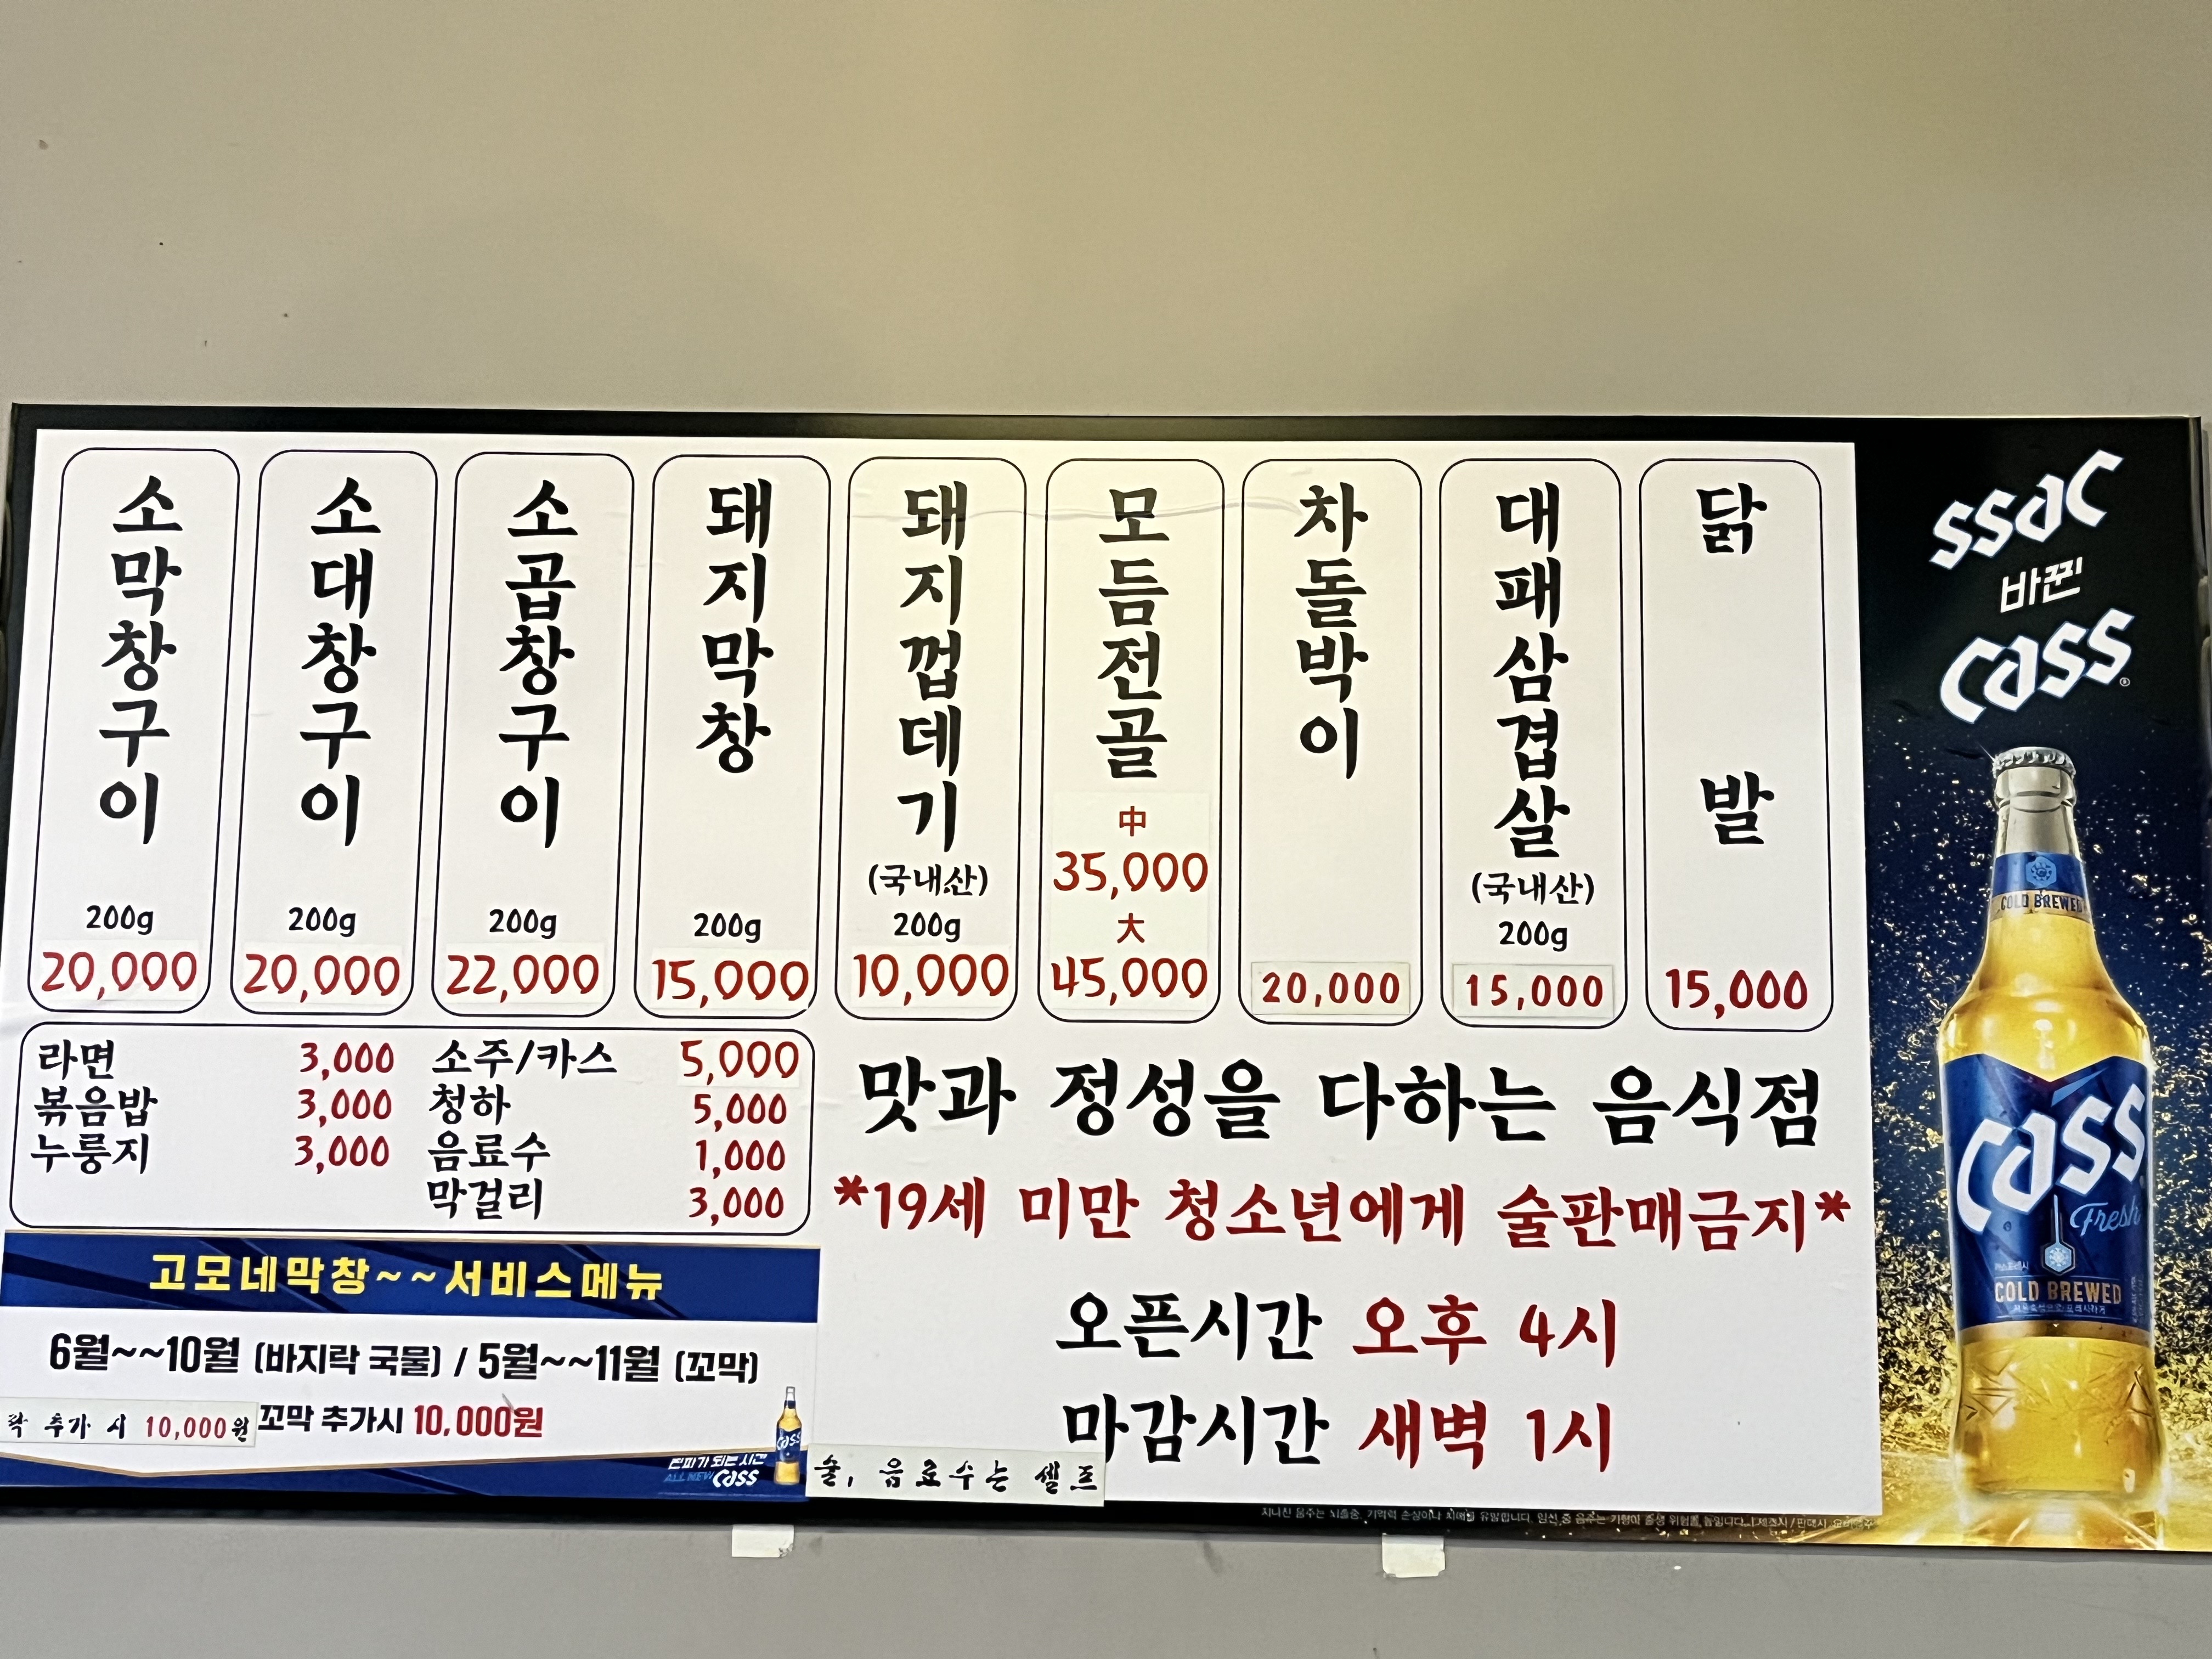 소막창구이
200g
20,000
소대창구이
200g
20,000
소곱창구이
200g
22,000
돼지막창
200g
15,000
돼지껍데기
(국내산)
200g
10,000
모듬전골
中
35,000
大
45,000
차돌박이
20,000
대패삼겹살
(국내산)
200g
15,000
닭발
15,000
라면 3,000
볶음밥 3,000
누룽지 3,000
소주/카스 5,000
청하 5,000
음료수 1,000
막걸리 3,000
맛과 정성을 다하는 음식점
*19세 미만 청소년에게 술판매금지*
오픈시간 오후 4시
마감시간 새벽 1시
고모네막창~~서비스메뉴
6월~~10월 (바지락 국물) / 5월~~11월 (꼬막)
락 추가 시 10,000원 꼬막 추가시 10,000원
ALL NEW Cass
술, 음료수는 셀프
ssac
바뀐
Cass
COLD BREWED
Cass
Fresh
COLD BREWED